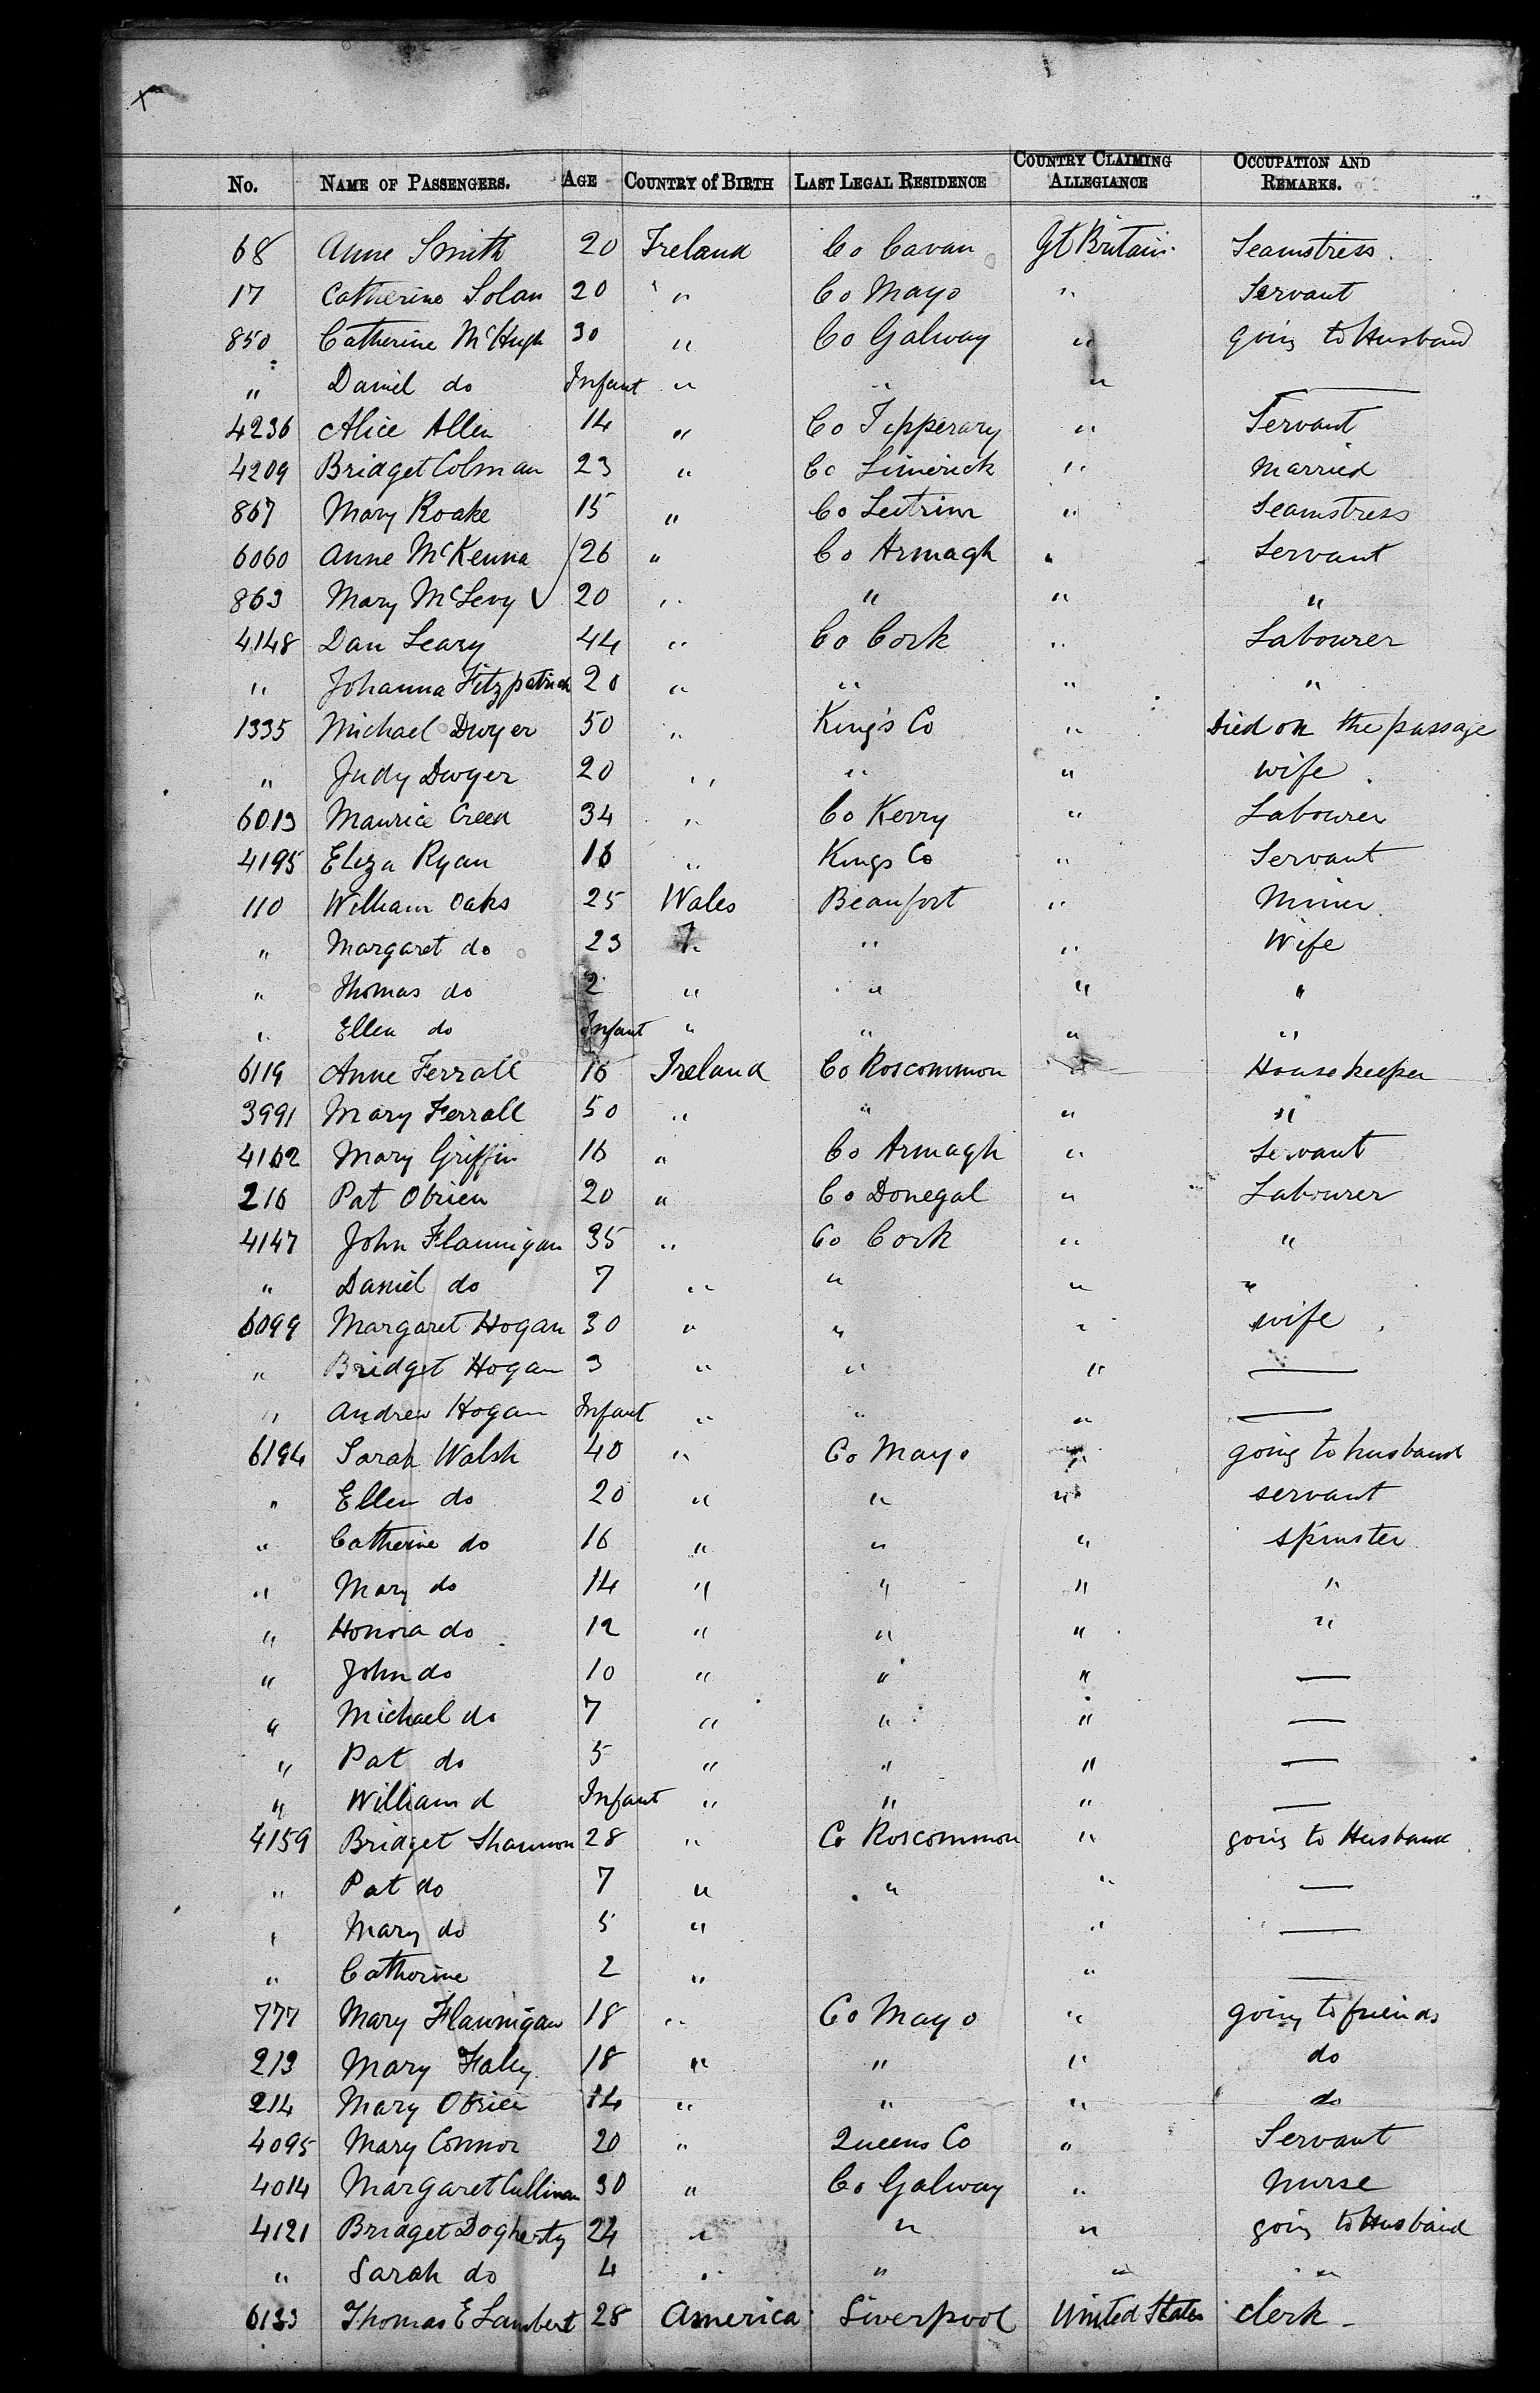 No. NAME OF PASSENGERS. AGE COUNTRY of BIRTH LAST LEGAL RESIDENCE COUNTRY CLAIMING ALLEGIANCE OCCUPATION AND REMARKS.
68 Anne Smith 20 Ireland Co Cavan Gt Britain Seamstress.
17 Catherine Solan 20 " Co Mayo " Servant
850 Catherine McHugh 30 " Co Galway " going to Husband
" Daniel do Infant " " " —
4236 Alice Allen 14 " Co Tipperary " Servant
4209 Bridget Colman 23 " Co Limerick " Married
867 Mary Roake 15 " Co Leitrim " Seamstress
6060 Anne McKenna 26 " Co Armagh " Servant
863 Mary McLevy 20 " " " "
4148 Dan Leary 44 " Co Cork " Labourer
" Johanna Fitzpatrick 20 " " " "
1335 Michael Dwyer 50 " King's Co " Died on the passage
" Judy Dwyer 20 " " " wife.
6013 Maurice Creen 34 " Co Kerry " Labourer
4195 Eliza Ryan 16 " Kings Co " Servant
110 William Oaks 25 Wales Beaufort " Miner
" Margaret do 23 " " " Wife
" Thomas do 2 " " " "
" Ellen do Infant " " " "
6119 Anne Ferrall 16 Ireland Co Roscommon " Housekeeper
3991 Mary Ferrall 50 " " " "
4162 Mary Griffin 16 " Co Armagh " Servant
216 Pat Obrien 20 " Co Donegal " Labourer
4147 John Flannigan 35 " Co Cork " "
" Daniel do 7 " " " "
6099 Margaret Hogan 30 " " " wife
" Bridget Hogan 3 " " " —
" Andrew Hogan Infant " " " —
6194 Sarah Walsh 40 " Co Mayo " going to husband
" Ellen do 20 " " " servant
" Catherine do 16 " " " spinster
" Mary do 14 " " " "
" Honora do 12 " " " "
" John do 10 " " " —
" Michael do 7 " " " —
" Pat do 5 " " " —
" William d Infant " " " —
4159 Bridget Shannon 28 " Co Roscommon " going to Husband
" Pat do 7 " " " —
" Mary do 5 " " —
" Catherine 2 " " —
777 Mary Flannigan 18 " Co Mayo " going to friends
213 Mary Faley 18 " " " do
214 Mary Obrien 14 " " " do
4095 Mary Connor 20 " Queens Co " Servant
4014 Margaret Cullinan 30 " Co Galway " Nurse
4121 Bridget Dogherty 24 " " " going to Husband
" Sarah do 4 " " " "
6133 Thomas E Lambert 28 America Liverpool United States Clerk